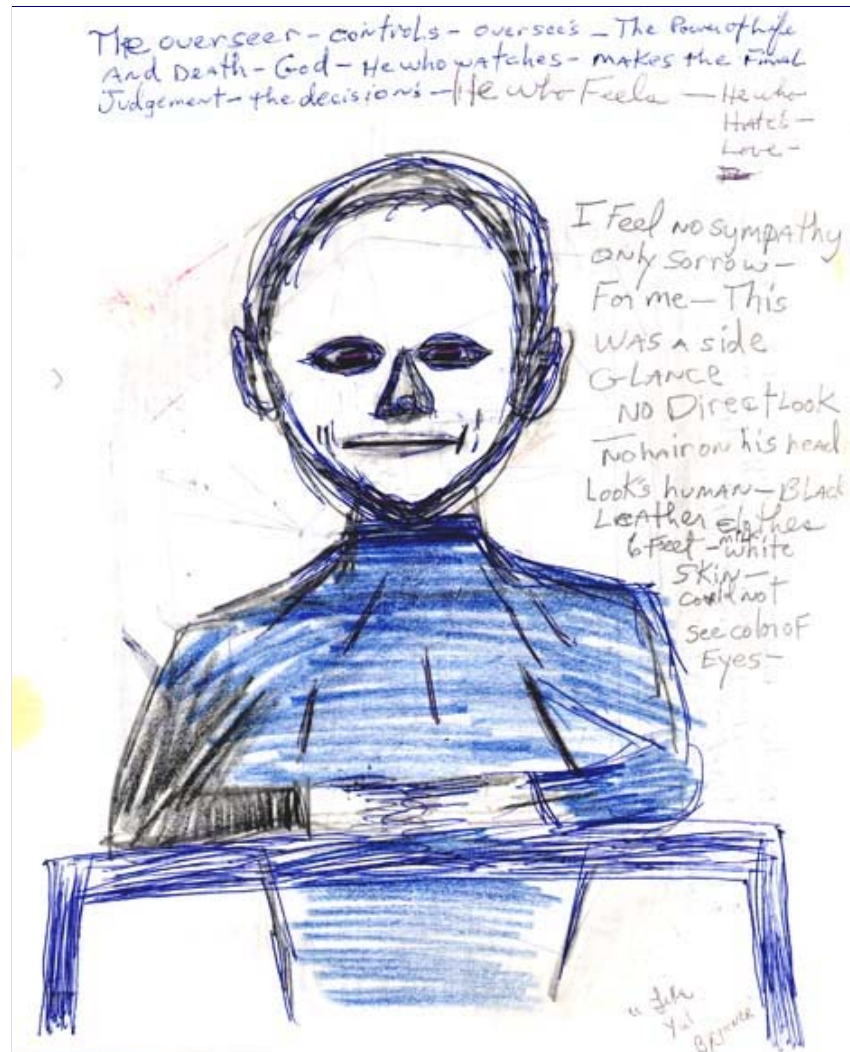 The overseer - controls - oversee's - The Power of Life
And Death - God - He who watches - makes the Final
Judgement - the decisions - He who Feels - He who
Hates -
Love -
I Feel no sympathy
only sorrow -
For me - This
WAS A side
GLANCE
NO Direct Look
No hair on his head
Look's human - Black
Leather clothes
6 Feet - milk white
SKIN -
could not
see color of
Eyes -
"Like
Yul
BRYNNER"